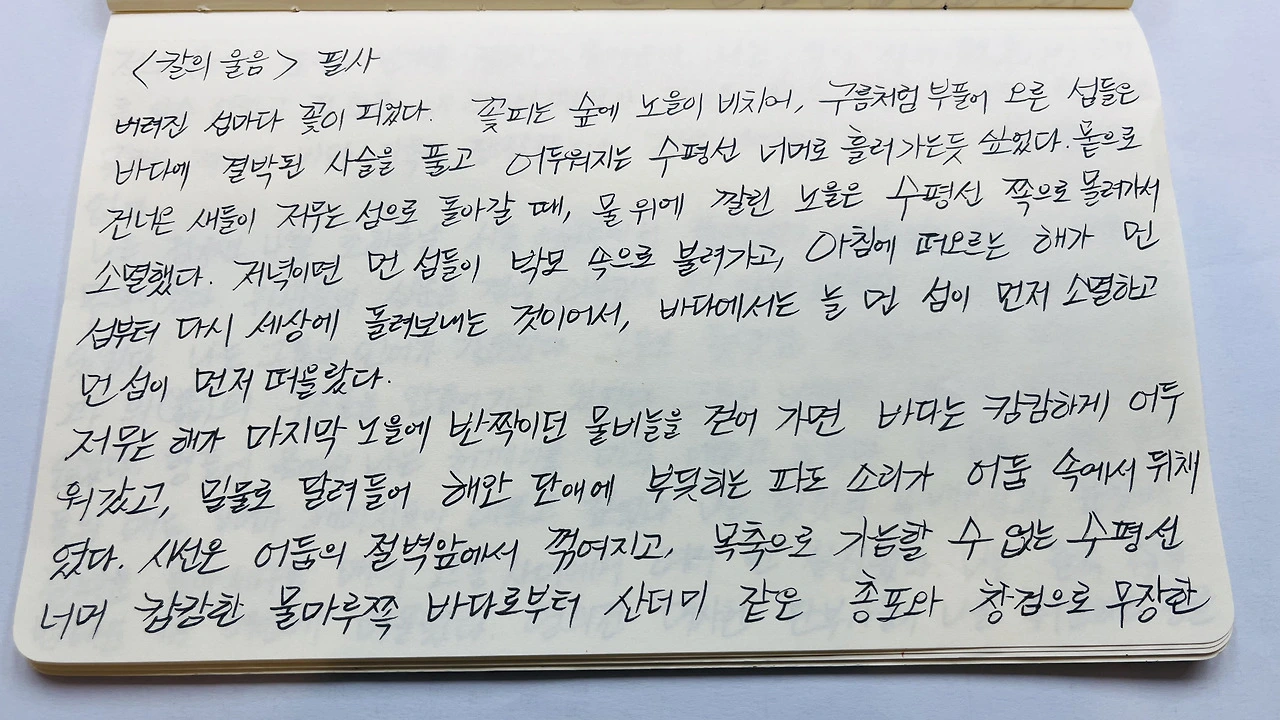 <칼의 울음> 필사
버려진 섬마다 꽃이 피었다. 꽃피는 숲에 노을이 비치어, 구름처럼 부풀어 오른 섬들은
바다에 결박된 사슬을 풀고 어두워지는 수평선 너머로 흘러가는듯 싶었다. 뭍으로
건너온 새들이 저무는 섬으로 돌아갈 때, 물 위에 깔린 노을은 수평선 쪽으로 몰려가서
소멸했다. 저녁이면 먼 섬들이 박모 속으로 불려가고, 아침에 떠오르는 해가 먼
섬부터 다시 세상에 돌려보내는 것이어서, 바다에서는 늘 먼 섬이 먼저 소멸하고
먼 섬이 먼저 떠올랐다.
저무는 해가 마지막 노을에 반짝이던 물비늘을 걷어 가면 바다는 캄캄하게 어두
워갔고, 밀물로 달려들어 해안 단애에 부딪히는 파도 소리가 어둠 속에서 뒤채
였다. 시선은 어둠의 절벽앞에서 꺾여지고, 목측으로 가늠할 수 없는 수평선
너머 캄캄한 물마루쪽 바다로부터 산더미 같은 총포와 창검으로 무장한